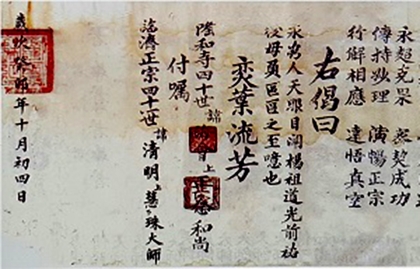 永超交果 喪契成功
傳持妙理 演暢正宗
行解相應 達悟真空
右偈曰
永為人天眼目闡揚祖道光前裕
毋負區區之至囑也
奕葉流芳
隆和寺四十世諱上和尚
付囑
臨濟正宗四十世諱清明上慧下珠大師
年十月初四日